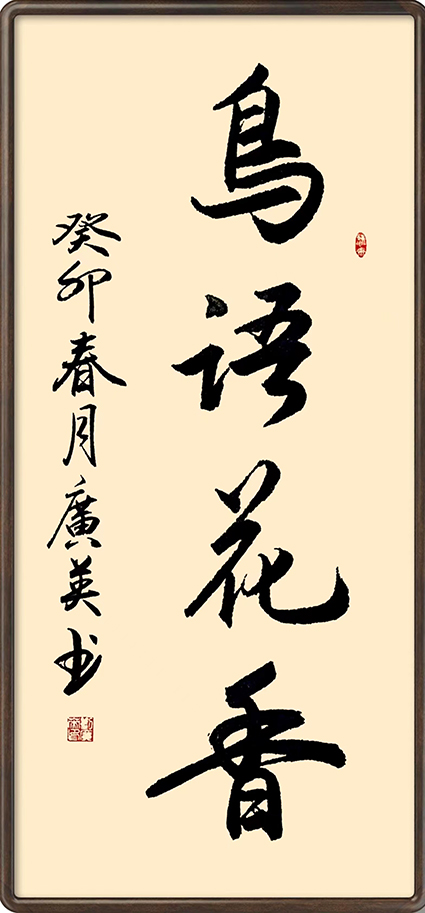 鳥語花香
癸卯春月廣英书